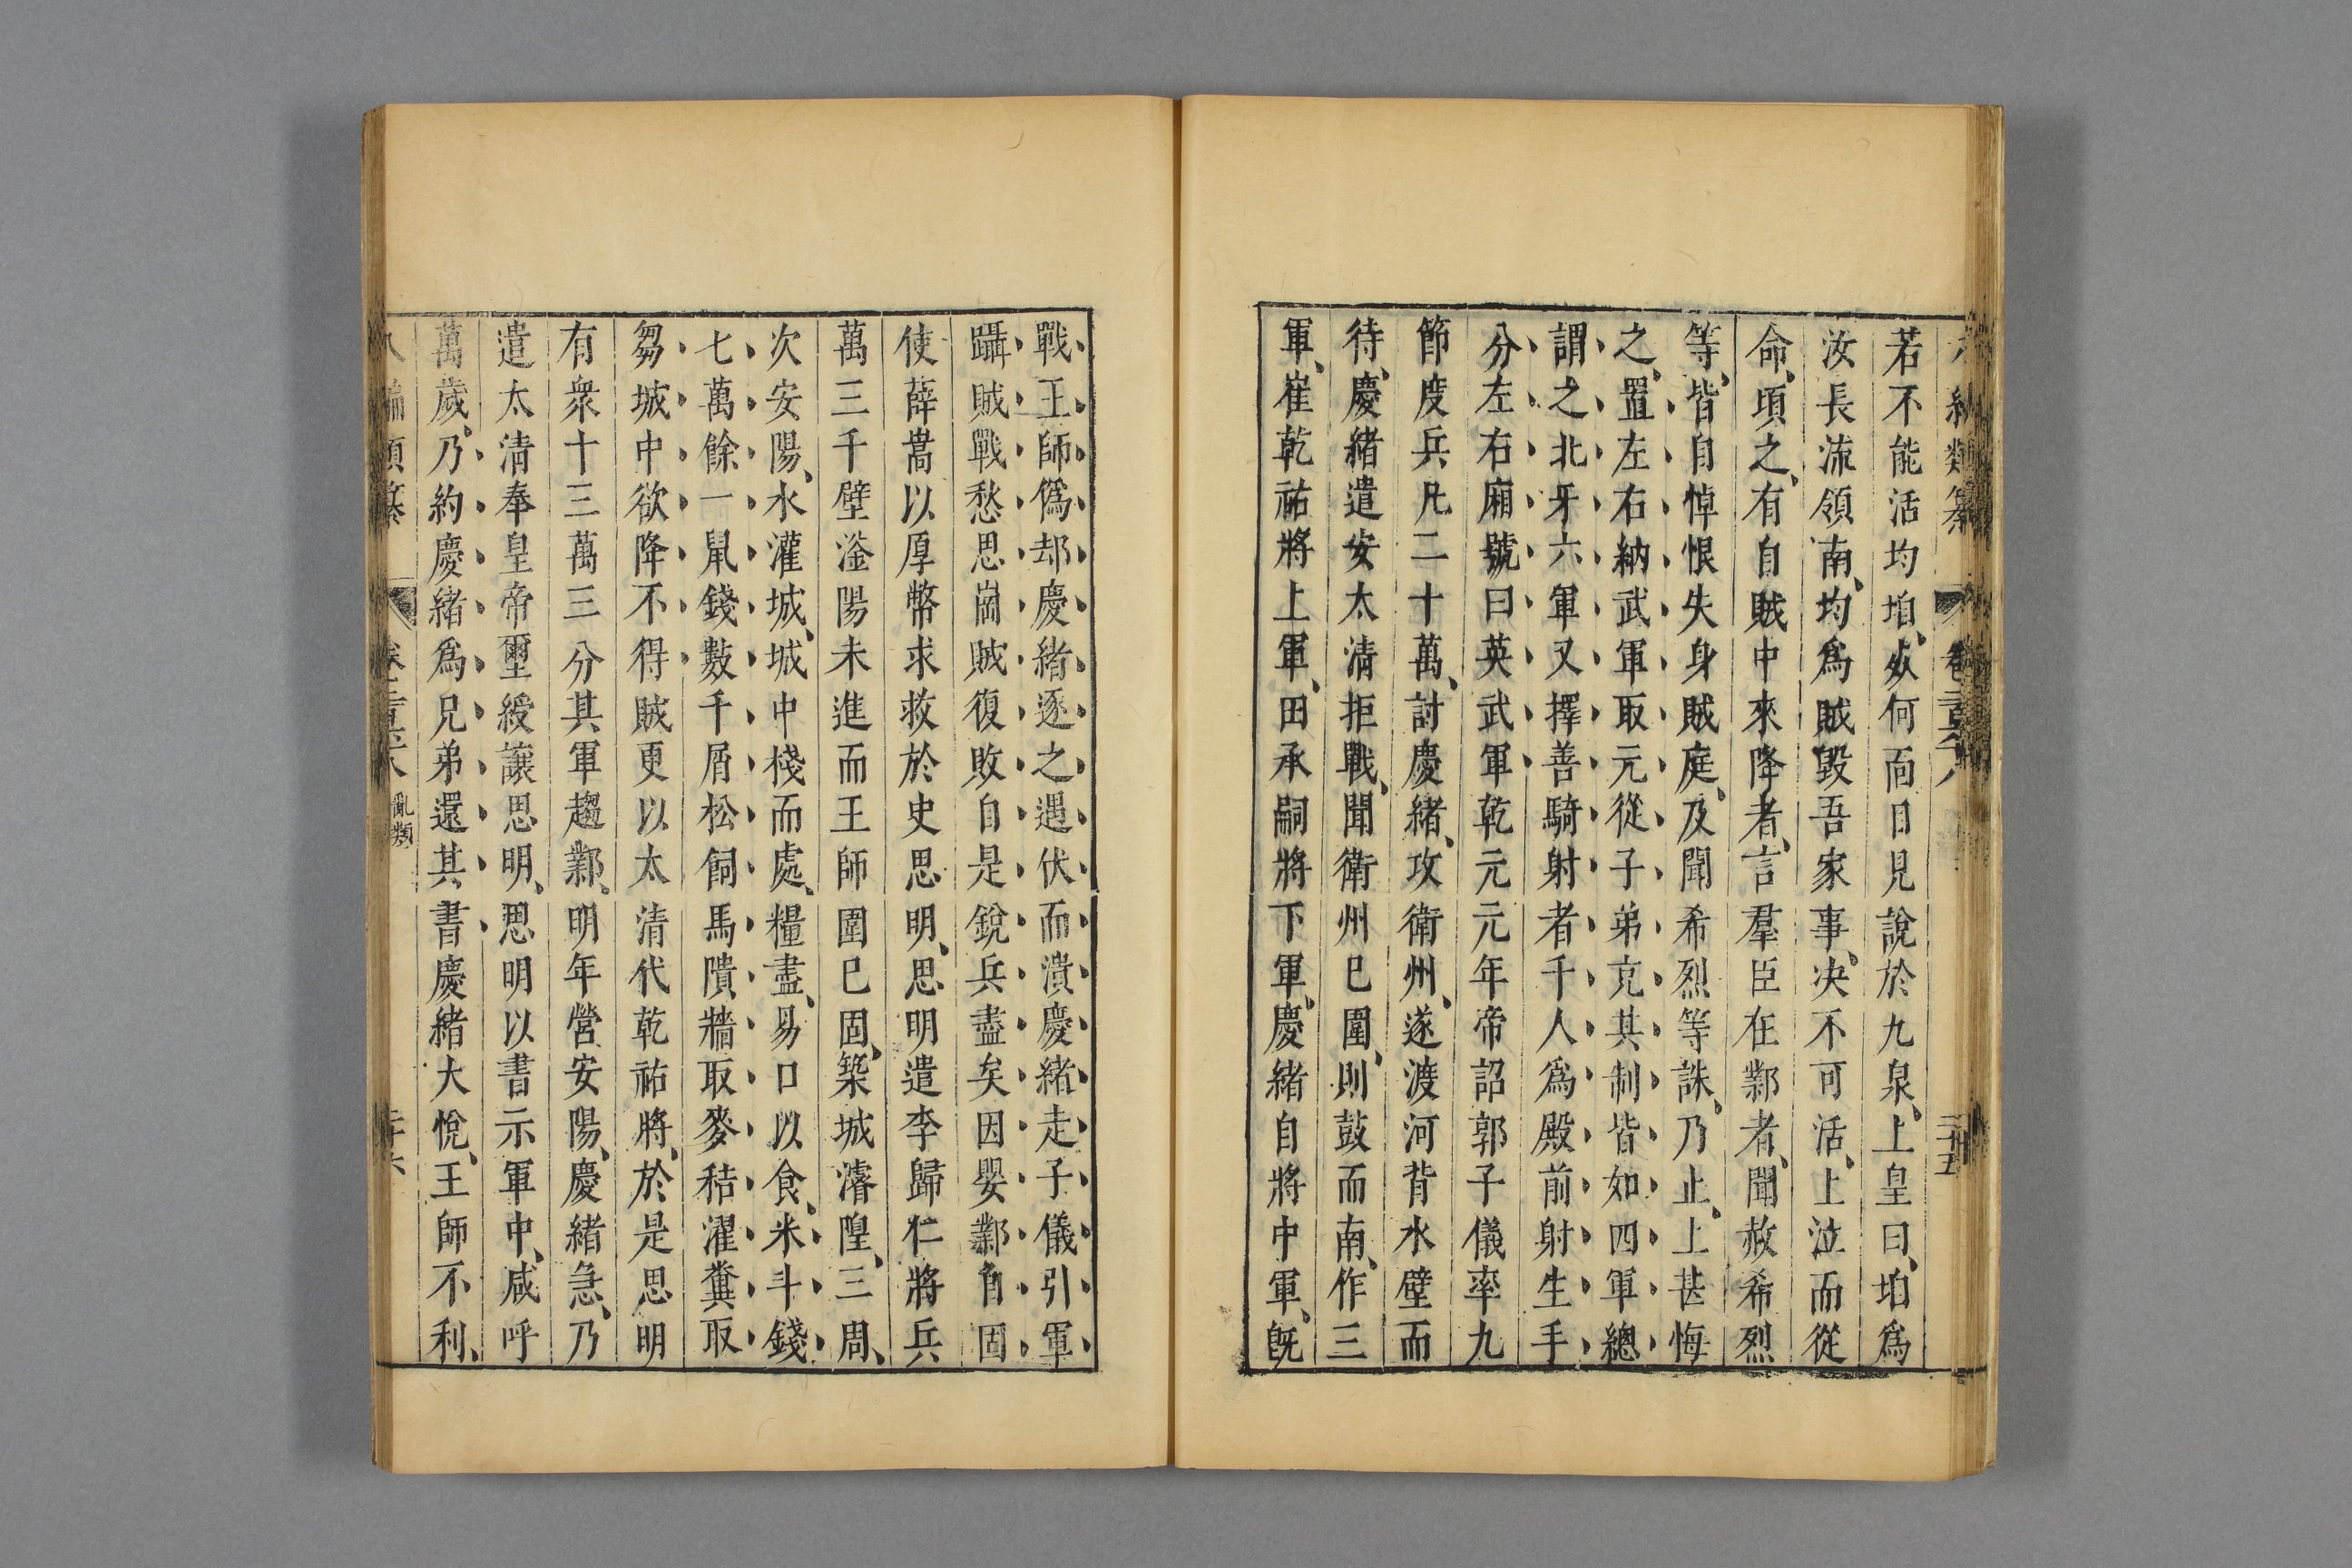 若不能活均垍、死何面目見說於九泉、上皇曰、垍爲
汝長流領南、均爲賊毀吾家事、决不可活、上泣而從
命、頃之、有自賊中來降者、言羣臣在鄴者、聞赦希烈
等、皆自悼恨失身賊庭、及聞希烈等誅、乃止、上甚悔
之、置左右納武軍取元從子弟充其制皆如四軍總
謂之北牙六軍又擇善騎射者千人爲殿前射生手
分左右廂號曰英武軍乾元元年帝詔郭子儀率九
節度兵凡二十萬、討慶緒、攻衛州、遂渡河背水壁而
待、慶緒遣安太清拒戰、聞衛州已圍、則鼓而南、作三
軍、崔乾祐將上軍、田承嗣將下軍、慶緒自將中軍、既
戰王師僞却慶緒逐之遇伏而潰慶緒走子儀引軍
躡賊戰愁思崗賊復敗自是銳兵盡矣因嬰鄴自固
使薛嵩以厚幣求救於史思明、思明遣李歸仁將兵
萬三千壁滏陽未進而王師圍已固、築城濬隍、三周、
次安陽、水灌城、城中棧而處、糧盡、易口以食、米斗錢
七萬餘一鼠錢數千屑松飼馬隤牆取麥秸濯糞取
芻城中欲降不得賊更以太清代乾祐將、於是思明
有衆十三萬三分其軍趨鄴、明年營安陽、慶緒急、乃
遣太清奉皇帝璽綬讓思明、思明以書示軍中、咸呼
萬歲、乃約慶緒爲兄弟還其書慶緒大悅、王師不利、
亂類